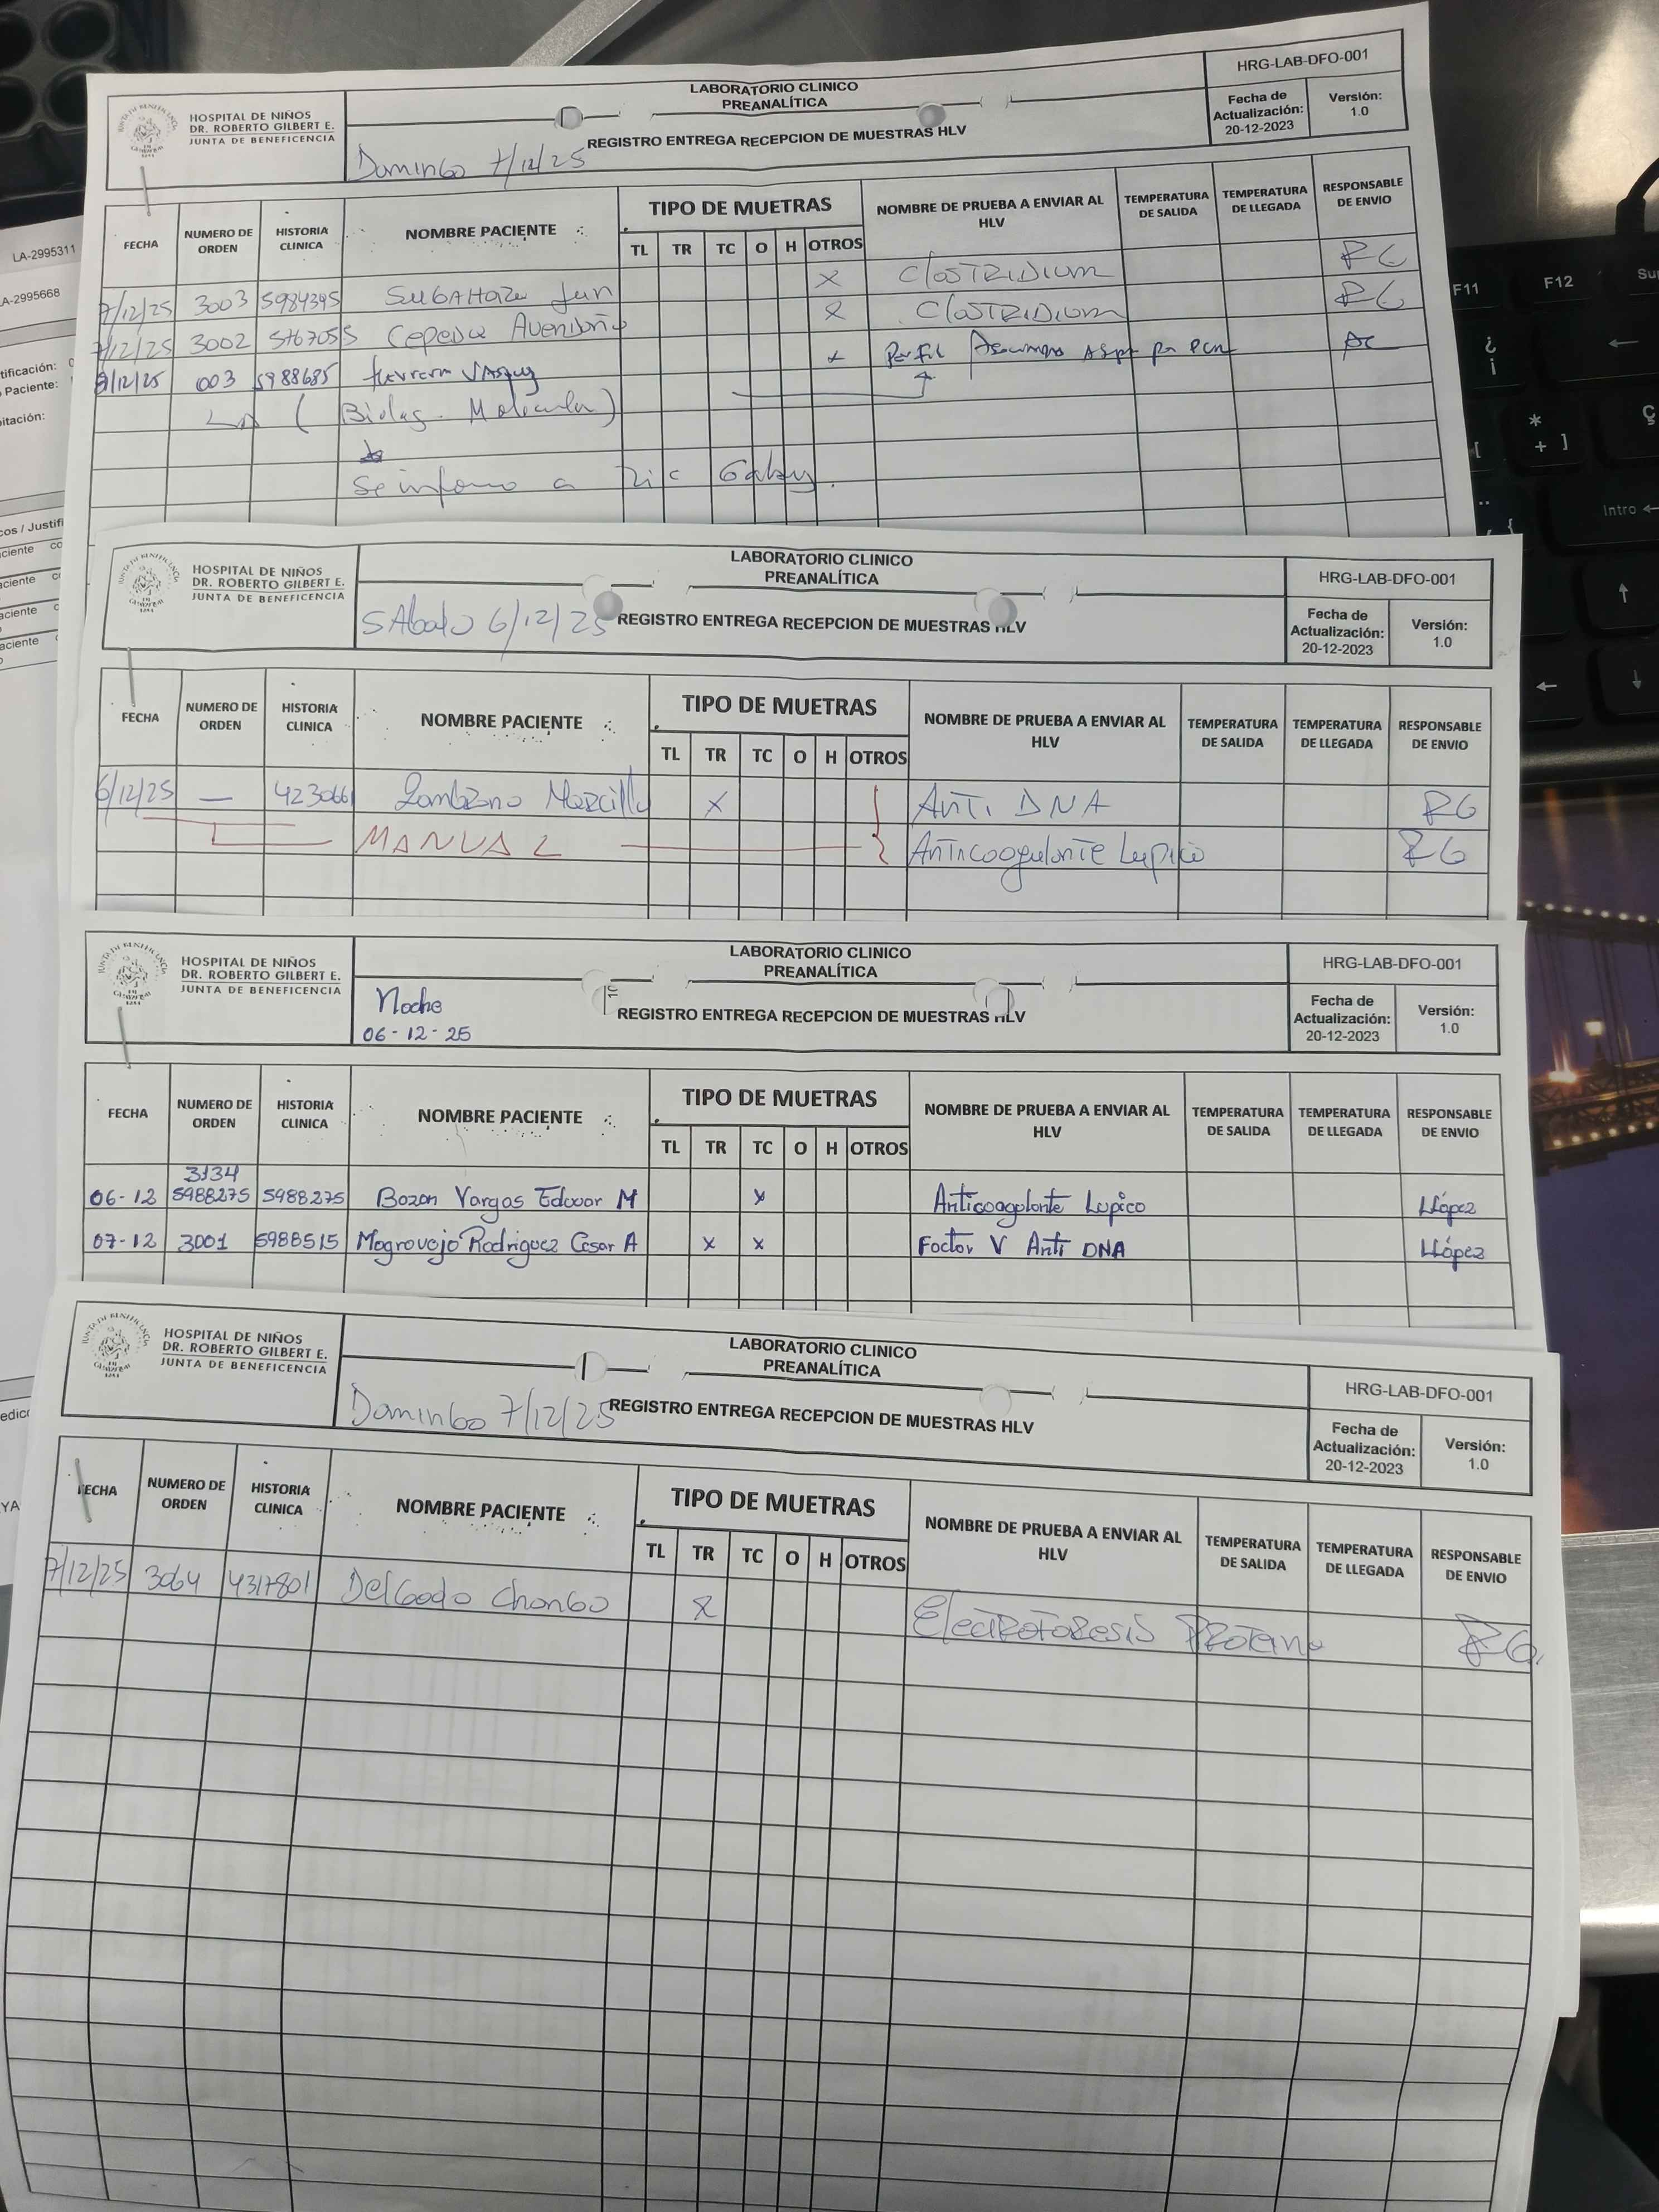 LA-2995311
A-2995668
tificación:
Paciente:
itación:
cos / Justifi
ciente co
HOSPITAL DE NIÑOS
DR. ROBERTO GILBERT E.
JUNTA DE BENEFICENCIA
LABORATORIO CLINICO
PREANALÍTICA
REGISTRO ENTREGA RECEPCION DE MUESTRAS HLV
Domingo 7/12/25
HRG-LAB-DFO-001
Fecha de Actualización: 20-12-2023
Versión: 1.0
FECHA NUMERO DE ORDEN HISTORIA CLINICA NOMBRE PACIENTE TIPO DE MUETRAS NOMBRE DE PRUEBA A ENVIAR AL HLV TEMPERATURA DE SALIDA TEMPERATURA DE LLEGADA RESPONSABLE DE ENVIO
TL TR TC O H OTROS
7/12/25 3003 5984395 X Clostridium RG
7/12/25 3002 Cepeda Avendaño X Clostridium RG
8/12/25 003 5988685 x Perfil por PCR
(Biolog. Molecular)
Se informo a Lic Gaby.
HOSPITAL DE NIÑOS
DR. ROBERTO GILBERT E.
JUNTA DE BENEFICENCIA
LABORATORIO CLINICO
PREANALÍTICA
REGISTRO ENTREGA RECEPCION DE MUESTRAS HLV
SAbado 6/12/25
HRG-LAB-DFO-001
Fecha de Actualización: 20-12-2023
Versión: 1.0
FECHA NUMERO DE ORDEN HISTORIA CLINICA NOMBRE PACIENTE TIPO DE MUETRAS NOMBRE DE PRUEBA A ENVIAR AL HLV TEMPERATURA DE SALIDA TEMPERATURA DE LLEGADA RESPONSABLE DE ENVIO
TL TR TC O H OTROS
6/12/25 — 423066 Zambrano X Anti DNA RG
MANUAL Anticoagulante Lupico RG
HOSPITAL DE NIÑOS
DR. ROBERTO GILBERT E.
JUNTA DE BENEFICENCIA
LABORATORIO CLINICO
PREANALÍTICA
REGISTRO ENTREGA RECEPCION DE MUESTRAS HLV
Noche
06-12-25
HRG-LAB-DFO-001
Fecha de Actualización: 20-12-2023
Versión: 1.0
FECHA NUMERO DE ORDEN HISTORIA CLINICA NOMBRE PACIENTE TIPO DE MUETRAS NOMBRE DE PRUEBA A ENVIAR AL HLV TEMPERATURA DE SALIDA TEMPERATURA DE LLEGADA RESPONSABLE DE ENVIO
TL TR TC O H OTROS
3134
06-12 5988275 5988275 Bozan Vargas Edouar M x Anticoagolante Lupico LLópez
07-12 3001 5988515 Mogrovejo Rodriguez Cesar A x x Factor V Anti DNA LLópez
HOSPITAL DE NIÑOS
DR. ROBERTO GILBERT E.
JUNTA DE BENEFICENCIA
LABORATORIO CLINICO
PREANALÍTICA
REGISTRO ENTREGA RECEPCION DE MUESTRAS HLV
Domingo 7/12/25
HRG-LAB-DFO-001
Fecha de Actualización: 20-12-2023
Versión: 1.0
FECHA NUMERO DE ORDEN HISTORIA CLINICA NOMBRE PACIENTE TIPO DE MUETRAS NOMBRE DE PRUEBA A ENVIAR AL HLV TEMPERATURA DE SALIDA TEMPERATURA DE LLEGADA RESPONSABLE DE ENVIO
TL TR TC O H OTROS
7/12/25 3064 4317801 Delgado Chongo X Electroforesis Proteina RG
F11 F12
Intro